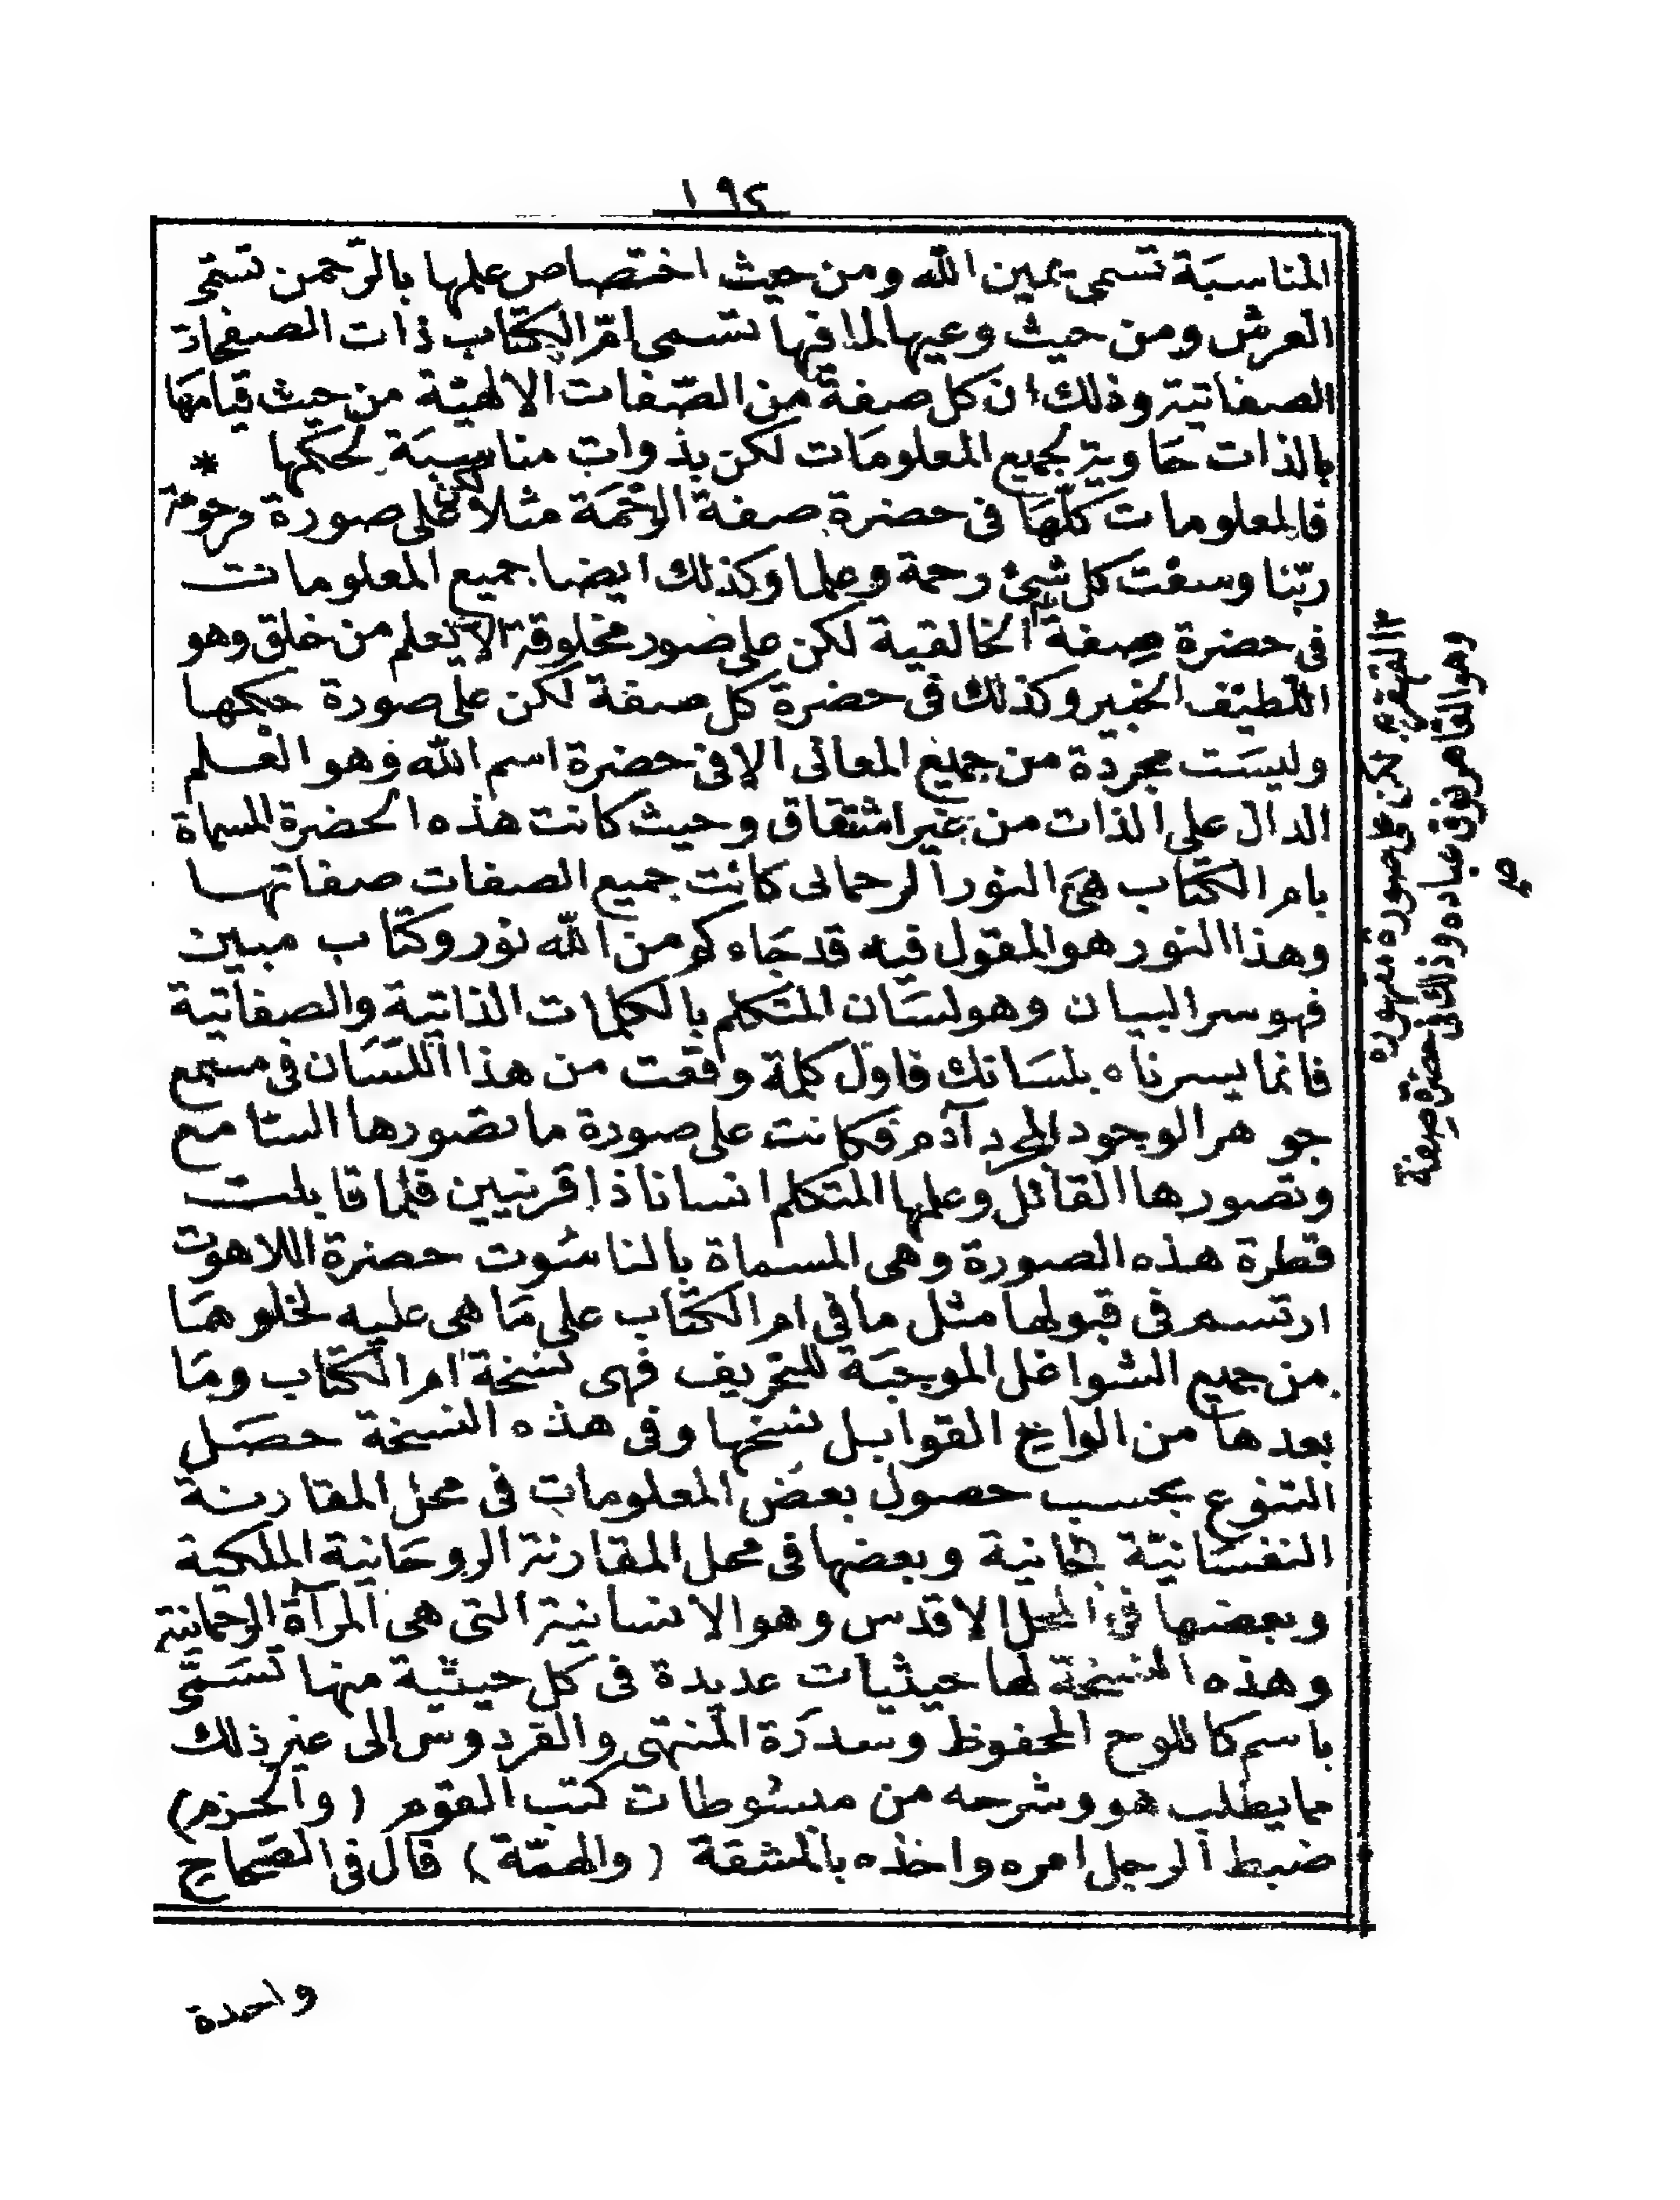 ١٩٢
المناسبَة تسمى يمين الله ومن حيث اختصاص علمها بالرّحمن تسمّى
العرش ومن حيث وعيها لما فيها تسمى امّ الكتاب ذات الصفحات
الصفاتية وذلك ان كل صفة من الصّفات الالهيّة من حيث قيامها
بالذات حَاوية لجميع المعلومَات لكن بذوات مناسبَة لحكمها *
فالمعلومات كلّهَا فى حضرة صفة الرّحمَة مثلا لكن على صورة مرحومة
ربّنا وسعْت كل شئ رحمة وعلما وكذلك ايضا جميع المعلومات
فى حضرة صفة الخالقية لكن على صور مخلوقة الا يعلم من خلق وهو
اللطيف الخبير وكذلك فى حضرة كل صفة لكن على صورة حكمها
وليسَت مجردة من جميع المعانى الا فى حضرة اسم الله وهو العلم
الدال على الذات من غير اشتقاق وحيث كانت هذه الحضرة المسماة
بام الكتاب هىَ النور الرحمانى كانت جميع الصفات صفاتها
وهذا النور هو المقول فيه قد جَاءكم من الله نور وكتاب مبين
فهو سر البيان وهو لسَان المتكلم بالكلمات الذاتية والصفاتية
فانما يسرناه بلسَانك فاول كلمة وقعت من هذا اللسَان فى مسمع
جوهر الوجود المجرد آدم فكانت على صورة ما تصورها السّامع
وتصورها القائل وعلمها المتكلم انسانا ذا قرنيين فلما قابلت
قطرة هذه الصورة وهى المسماة بالناسُوت حضرة اللاهوت
ارتسم فى قبولها مثل ما فى ام الكتاب على مَا هى عليه لخلوهَا
من جميع الشواغل الموجبَة للتحريف فهى نسخة ام الكتاب ومَا
بعدها من الواح القوابل نسخها وفى هذه النسخة حصَل
التنوع بحسب حصول بعض المعلومات فى محل المقارنة
النفسَانيّة ... وبعضها فى محل المقارنة الروحَانية الملكية
وبعضها فى المحل الاقدس وهو الانسانية التى هى المرآة الرحمانية
وهذه النسخة لها حيثيات عديدة فى كل حيثية منها تسَمّى
باسم كاللوح المحفوظ وسدرَة المنتهى والفردوس الى غير ذلك
مما يطلب هو وشرحه من مبسُوطات كتب القوم (والحزم)
ضبط الرجل امره واخذه بالمشقة (والهمّة) قال فى الصّحاح
القهرية لكن على صورة مقهورة
وهو القاهر فوق عباده وذلك فى حضرة صفة
صح
واحدة